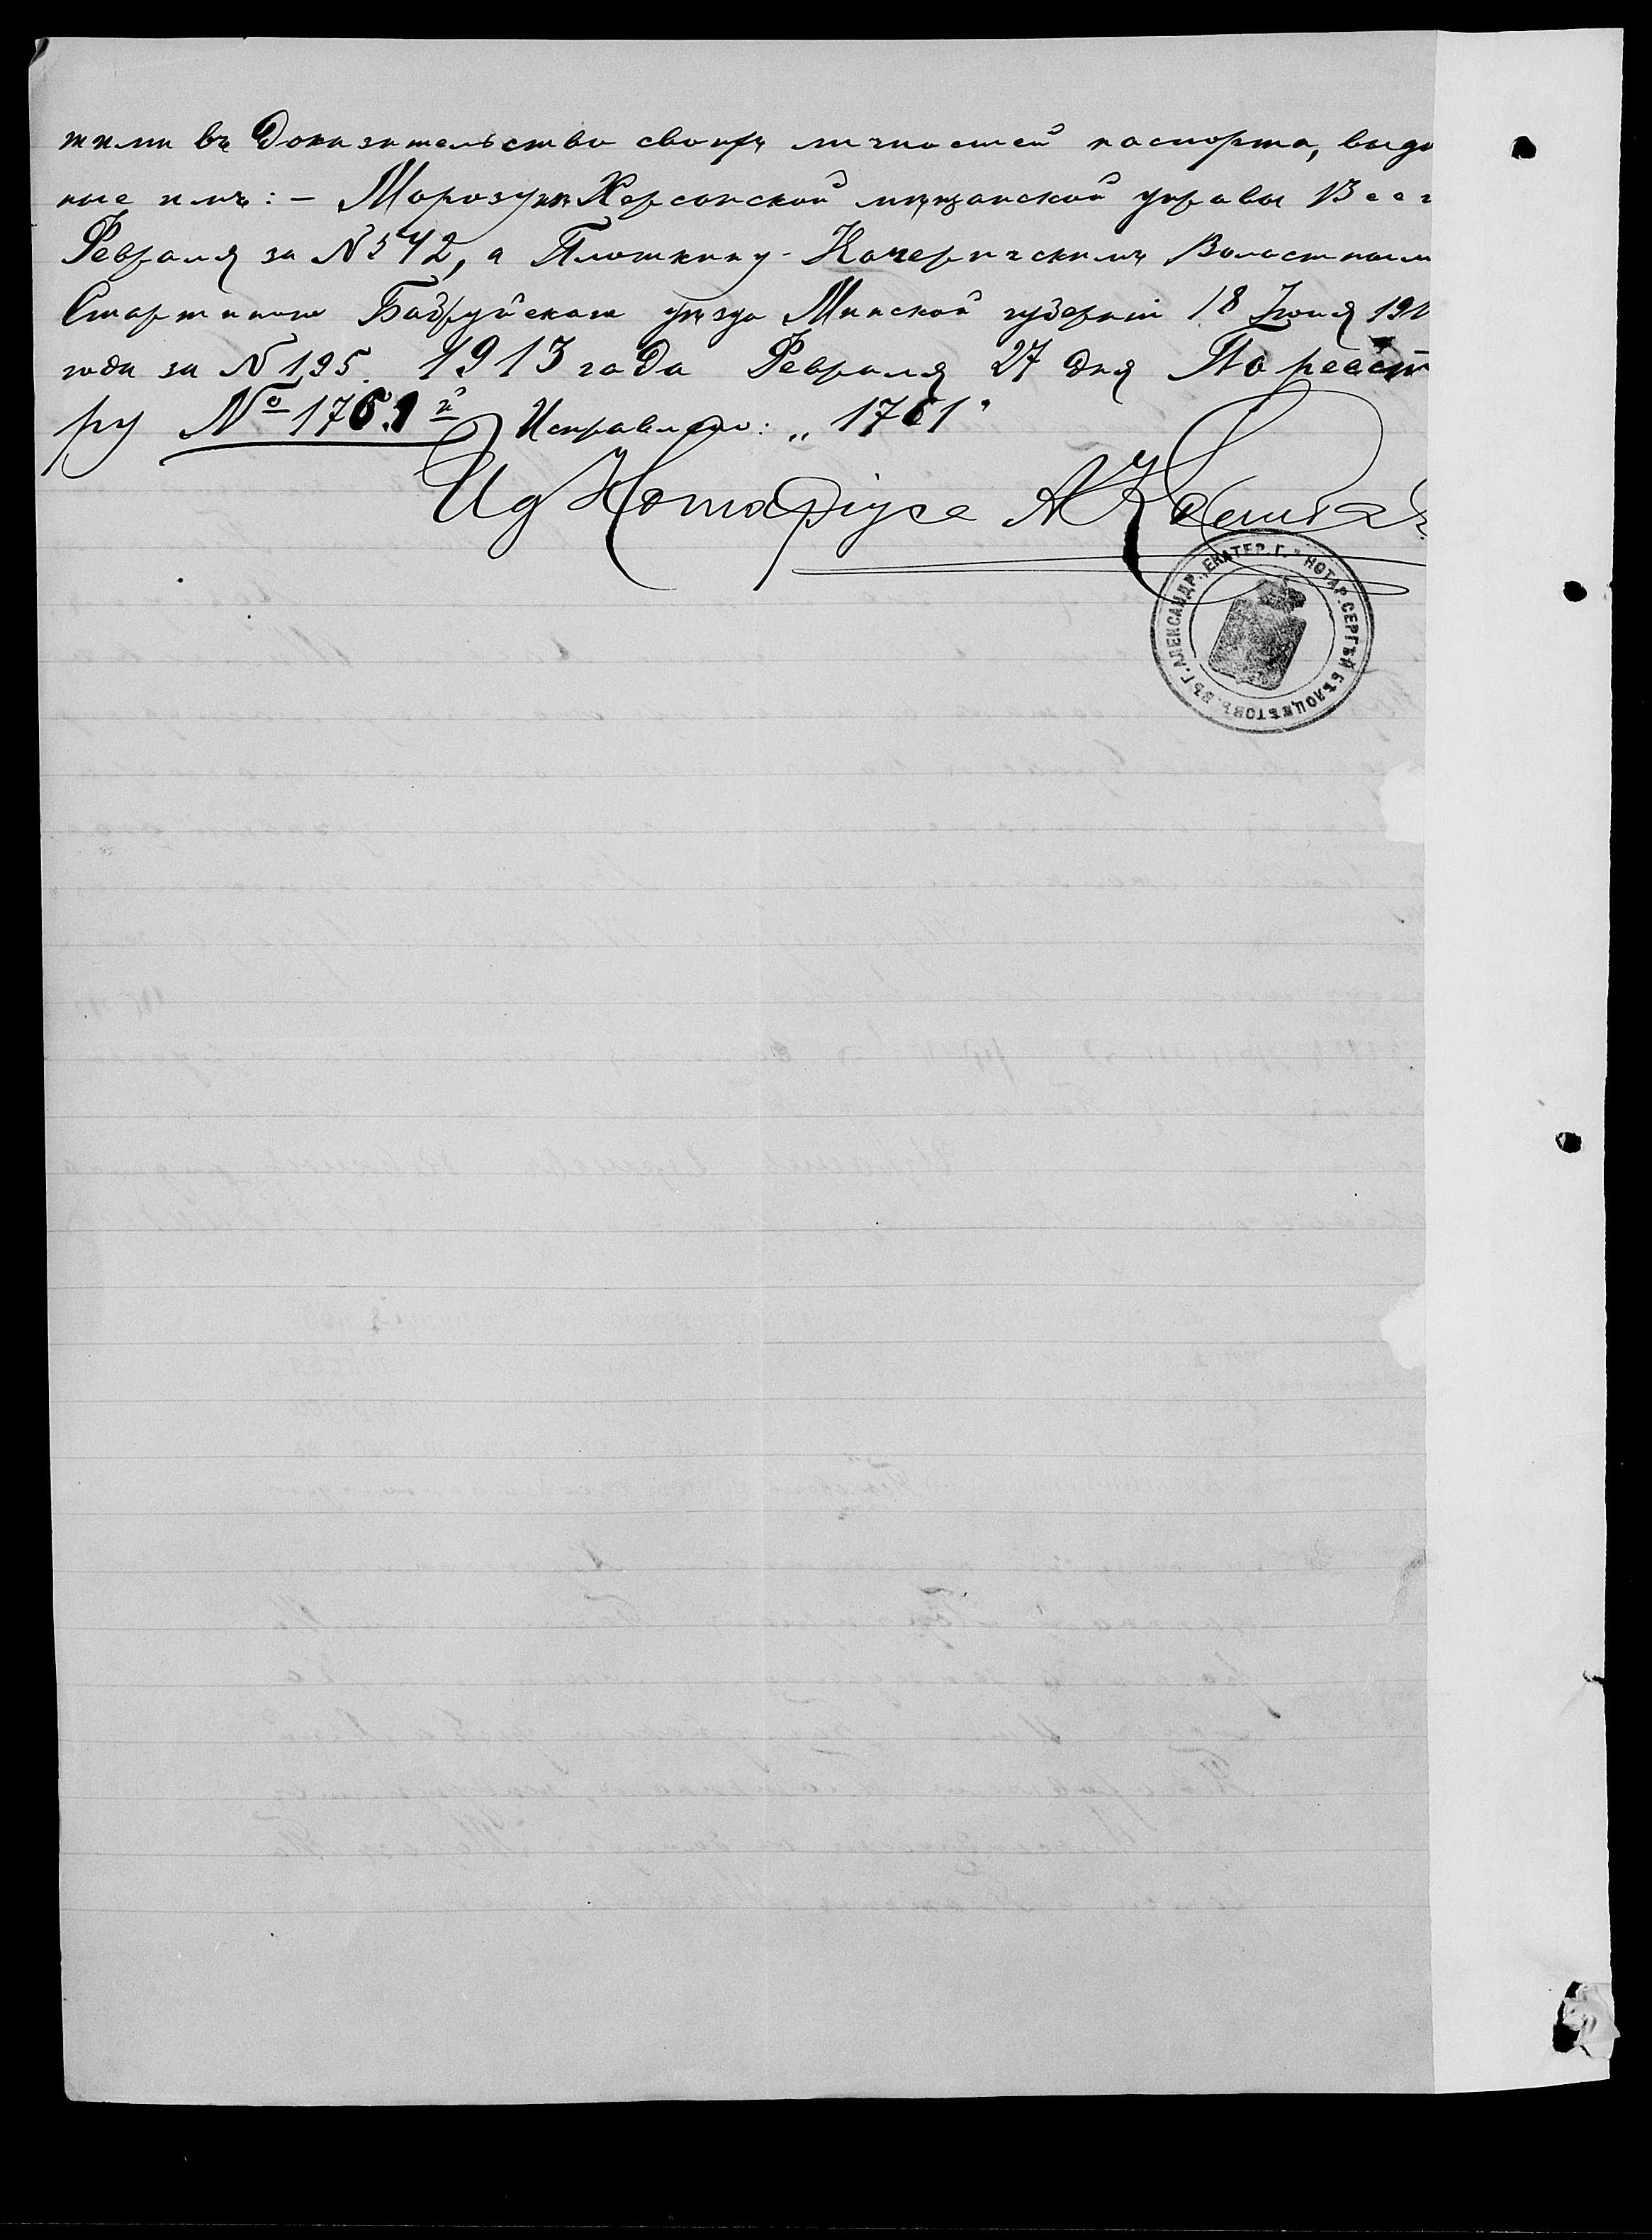 тили въ доказательство своихъ личностей паспорта, выда
ные имъ: – Морозу изъ Херсонской мѣщанской управы 13 сего
Февраля за № 342, а Плоткину - Качеричскимъ Волостным
Старшиною Бобруйскаго уѣзда Минской губерніи 18 Іюня 191
года за № 195. 1913 года Февраля 27 дня По реест
ру № 1761й Исправлено: „1761"
Ид Нотаріуса А
ВЪ Г. АЛЕКСАНДР., ЕКАТЕР. Г. * НОТАР. СЕРГѢЙ БѢЛОЦВѢТОВЪ.